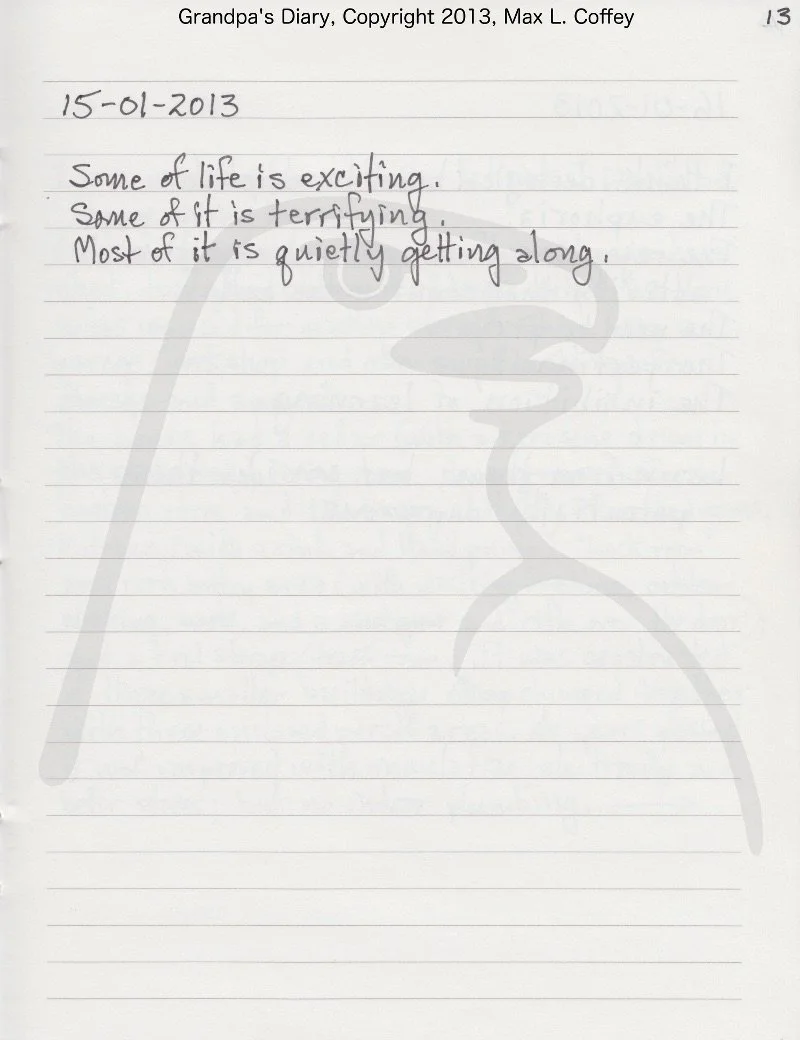 Grandpa's Diary, Copyright 2013, Max L. Coffey
13
15-01-2013
Some of life is exciting.
Some of it is terrifying.
Most of it is quietly getting along.